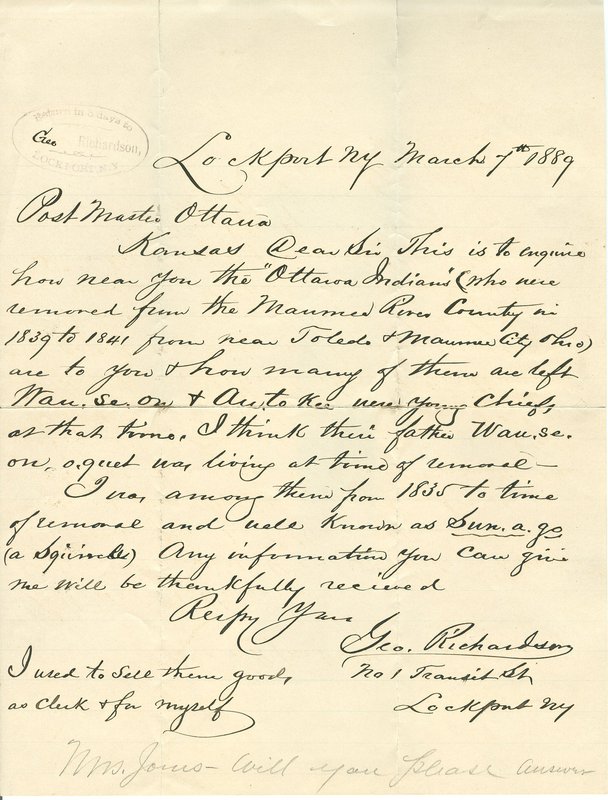 Return in 5 days to
Geo Richardson,
LOCKPORT N.Y.
Lockport Ny March 7th 1889
Post Master Ottawa
Kansas Dear Sir This is to enquire
how near you the "Ottawa Indians" (who were
removed from the Maumee River Country in
1839 to 1841 from near Toledo & Maumee City Ohio)
are to you & how many of them are left
Wau.se.on & Au.to Kee were young Chiefs
at that time. I think their father Wau.se.
on.o.quet was living at time of removal —
I was among them from 1835 to time
of removal and well known as Sun.a.go
(a Squirrell) Any information you can give
me will be thankfully recieved
Respy Yours
Geo. Richardson
No 1 Transit St
Lockport Ny
I used to sell them goods
as Clerk & for myself
Mrs. Jones - Will you please answer